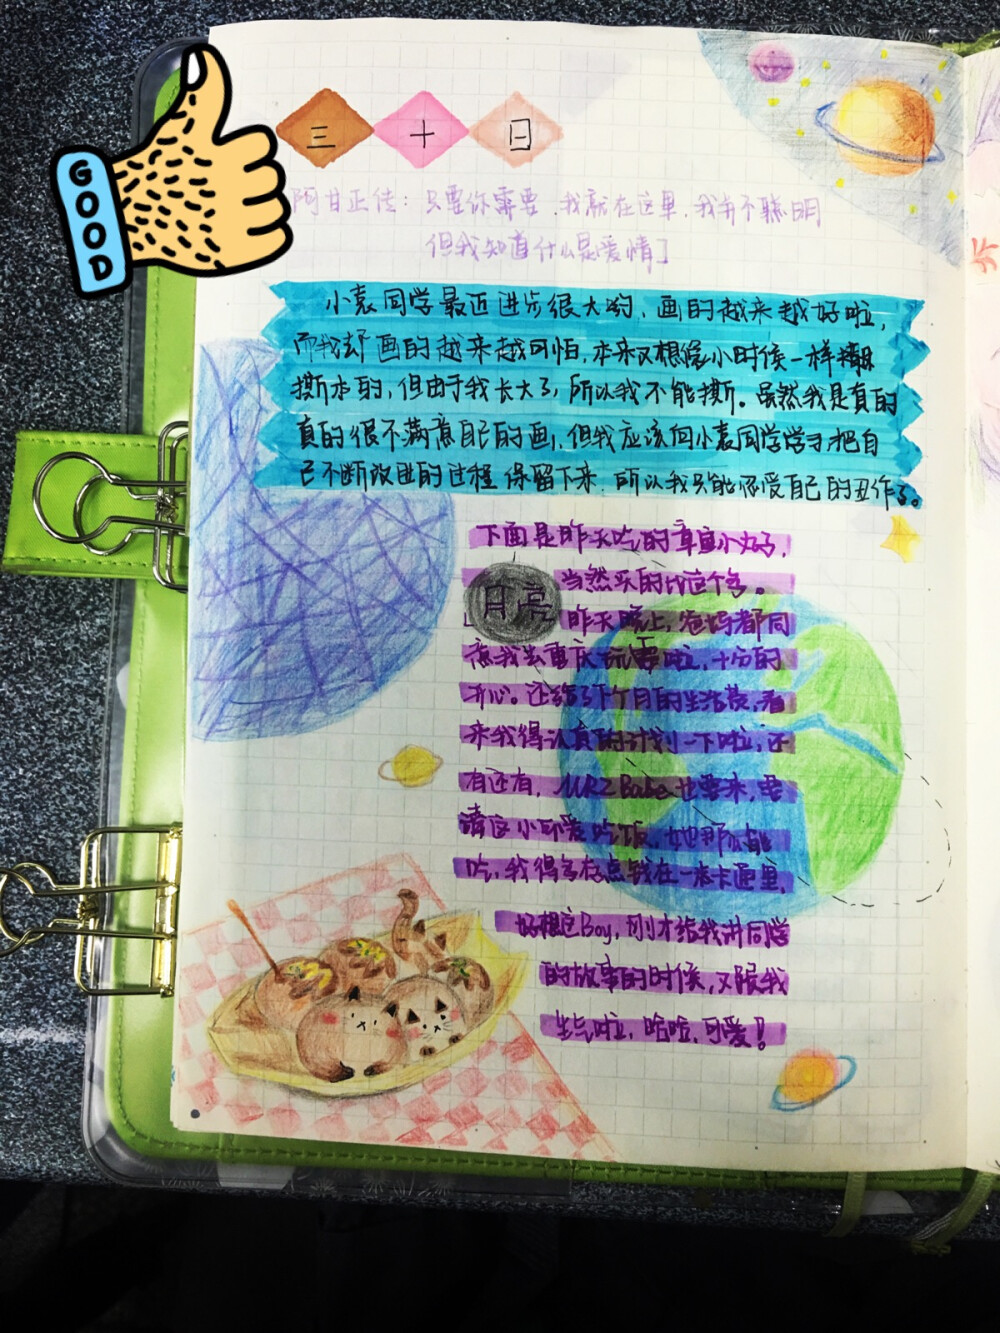 GOOD
三十日
阿甘正传：只要你需要，我就在这里，我并不聪明
但我知道什么是爱情]
小袁同学最近进步很大哟，画的越来越好啦，
而我却画的越来越可怕，本来又想像小时候一样
撕本的，但由于我长大了，所以我不能撕。虽然我是真的
真的很不满意自己的画，但我应该向小袁同学学习把自
己不断改进的过程保留下来 所以我只能怀爱自己的丑作了。
下面是昨天吃的章鱼小丸子，
当然买的比这个多。
月亮
昨天晚上，爸妈都同
意我去重庆玩耍啦，十分的
开心。还给了下个月的生活费，看
来我得认真的计划一下啦，还
有还有，Babe也要来，要
请这小可爱吃饭，她那么能
吃，我得多存点钱在一本卡里，
好想这Boy，刚才给我讲同学
的故事的时候，又跟我
生气啦，哈哈，可爱！